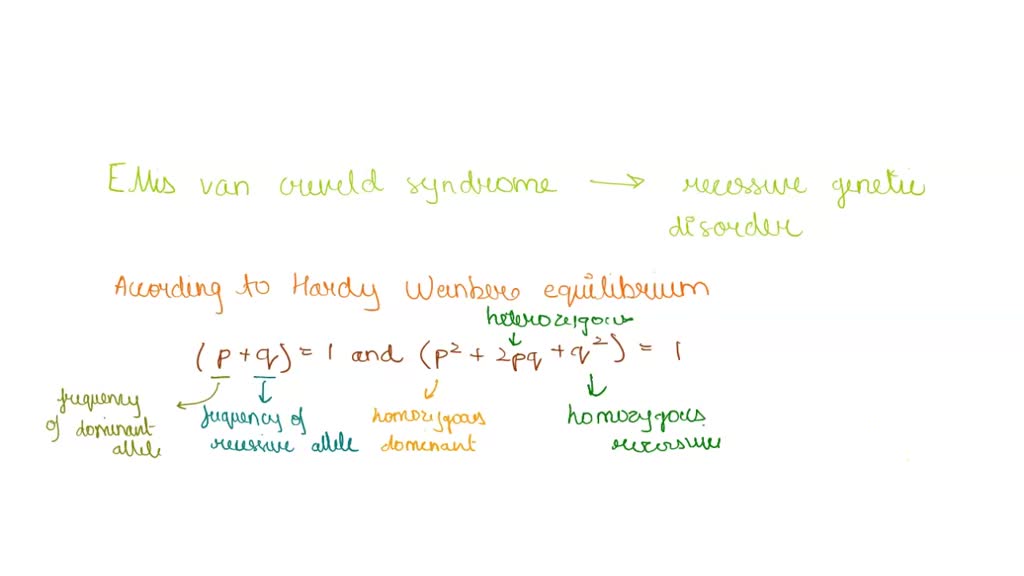 Ellis van creveld syndrome → recessive genetic
disorder
According to Hardy Wenberg equilibrium
heterozygous
(p + q) = 1 and (p² + 2pq + q²) = 1
frequency
of dominant
allele
frequency of
recessive allele
homozygous
domenant
homozygous
recessive